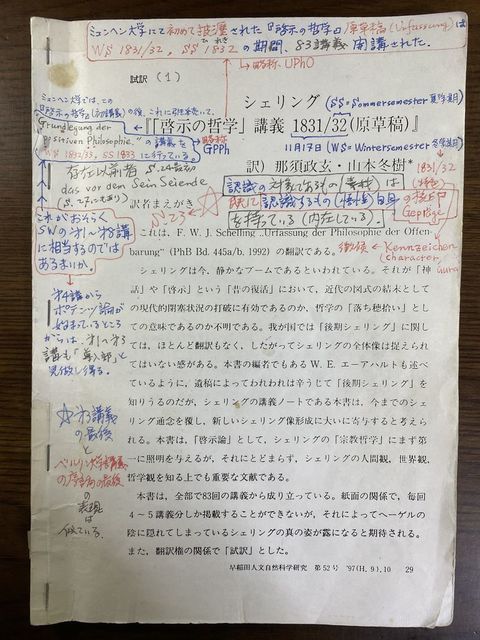 ミュンヘン大学にて初めて披瀝された『啓示の哲学』原草稿(Urfassung)は
ひれき
WS 1831/32, SS 1832 の期間、83講義 開講された.
→略称、UPhO
試訳(1)
ミュンヘン大学では、この
『啓示の哲学』(初講義)の後、これに引き続いて、
"Grundlegung der
Positiven Philosophie." の講義を
WS 1832/33, SS 1833 に行っている。
GPPh
シェリング
(SS=Sommersemester 夏学期)
『『啓示の哲学』講義 1831/32(原草稿)』
11月17日 (WS=Wintersemester 冬学期)
訳)那須政玄・山本冬樹*
存在以前者
das vor dem Sein Seiende
訳者まえがき
認識の対象であるもの(素材)は
既に認識するもの(働き)自身
を持っている(内在している).
1831/32
の捺印
geprägt
S.23
これがおそらく
SWの第1〜8講
に相当するのでは
あるまいか.
徴候 ← Kennzeichen
(character,
これは、F. W. J. Schelling „Urfassung der Philosophie der Offen-
barung" (PhB Bd. 445a/b. 1992) の翻訳である。
シェリングは今、静かなブームであるといわれている。それが「神
話」や「啓示」という「昔の復活」において、近代の図式の結末として
の現代的閉塞状況の打破に有効であるのか、哲学の「落ち穂拾い」とし
ての意味であるのか不明である。我が国では「後期シェリング」に関し
ては、ほとんど翻訳もなく、したがってシェリングの全体像は捉えられ
てはいない感がある。本書の編者でもあるW. E. エーアハルトも述べ
ているように、遺稿によってわれわれは辛うじて「後期シェリング」を
知りうるのだが、シェリングの講義ノートである本書は、今までのシェ
リング通念を覆し、新しいシェリング像形成に大いに寄与すると考えら
れる。本書は、「啓示論」として、シェリングの「宗教哲学」にまず第
一に照明を与えるが、それにとどまらず、シェリングの人間観、世界観、
哲学観を知る上でも重要な文献である。
本書は、全部で83回の講義から成り立っている。紙面の関係で、毎回
4〜5講義分しか掲載することができないが、それによってヘーゲルの
陰に隠れてしまっているシェリングの真の姿が露になると期待される。
また、翻訳権の関係で「試訳」とした。
第4講から
ポテンツ論が
始まっているところ
からは、第1〜第3
講も「導入部」と
見做し得る.
☆第3講義
の最後
と
ベルリン大学講義
の表現は
似ている.
早稲田人文自然科学研究 第52号 '97(H.9).10 29